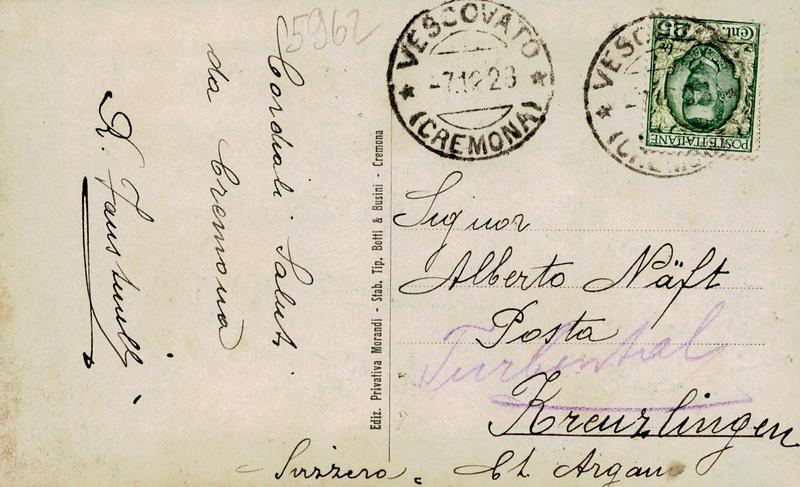 5962
Cordiali Saluti
da Cremona
VESCOVATO
-7.12.23
(CREMONA)
VESCO
(CREMO
Cent. 25
POSTE ITALIANE
Ediz. Privativa Morandi - Stab. Tip. Botti & Busini - Cremona
Signor
Alberto Näft
Posta
Turbental
Kreuzlingen
Svizzera = Ct. Argau